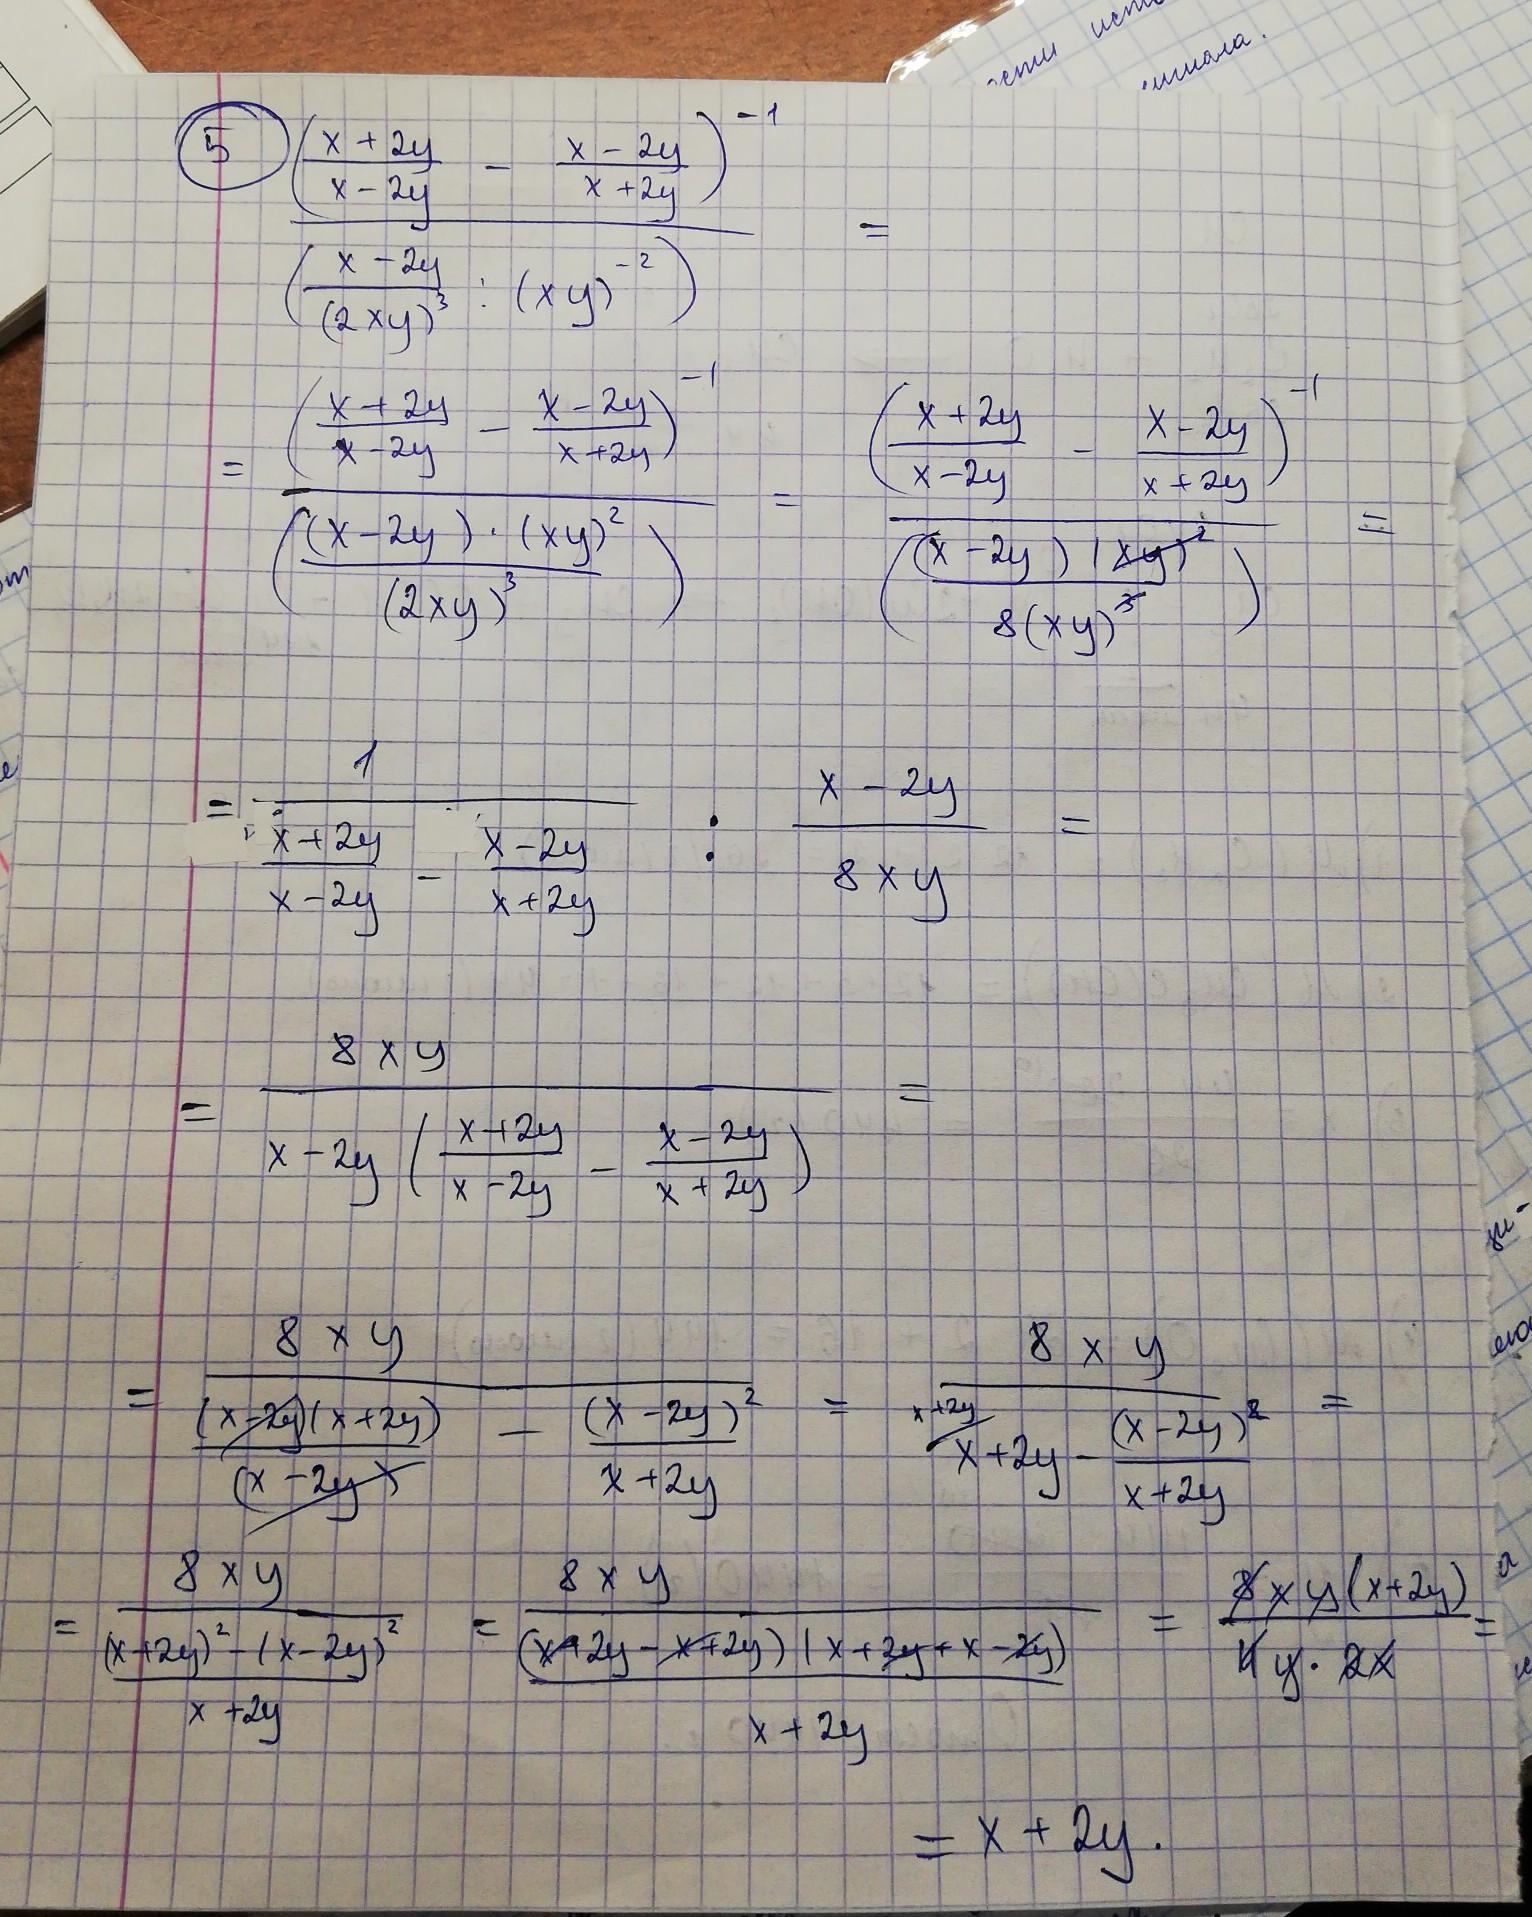 ости
сигнала.
5 ((x+2y)/(x-2y) - (x-2y)/(x+2y))^-1 / ((x-2y)/(2xy)^3 : (xy)^-2) =
= ((x+2y)/(x-2y) - (x-2y)/(x+2y))^-1 / ((x-2y)·(xy)^2/(2xy)^3) = ((x+2y)/(x-2y) - (x-2y)/(x+2y))^-1 / ((x-2y)(xy)^2/8(xy)^3) =
= 1/((x+2y)/(x-2y) - (x-2y)/(x+2y)) : (x-2y)/8xy =
= 8xy/(x-2y((x+2y)/(x-2y) - (x-2y)/(x+2y))) =
= 8xy/((x-2y)(x+2y)/(x-2y) - (x-2y)^2/(x+2y)) = 8xy/(x+2y / x+2y - (x-2y)^2/(x+2y)) =
= 8xy/(((x+2y)^2-(x-2y)^2)/(x+2y)) = 8xy/((x+2y-x+2y)(x+2y+x-2y)/(x+2y)) = 8xy(x+2y)/(4y·2x) =
= x+2y.